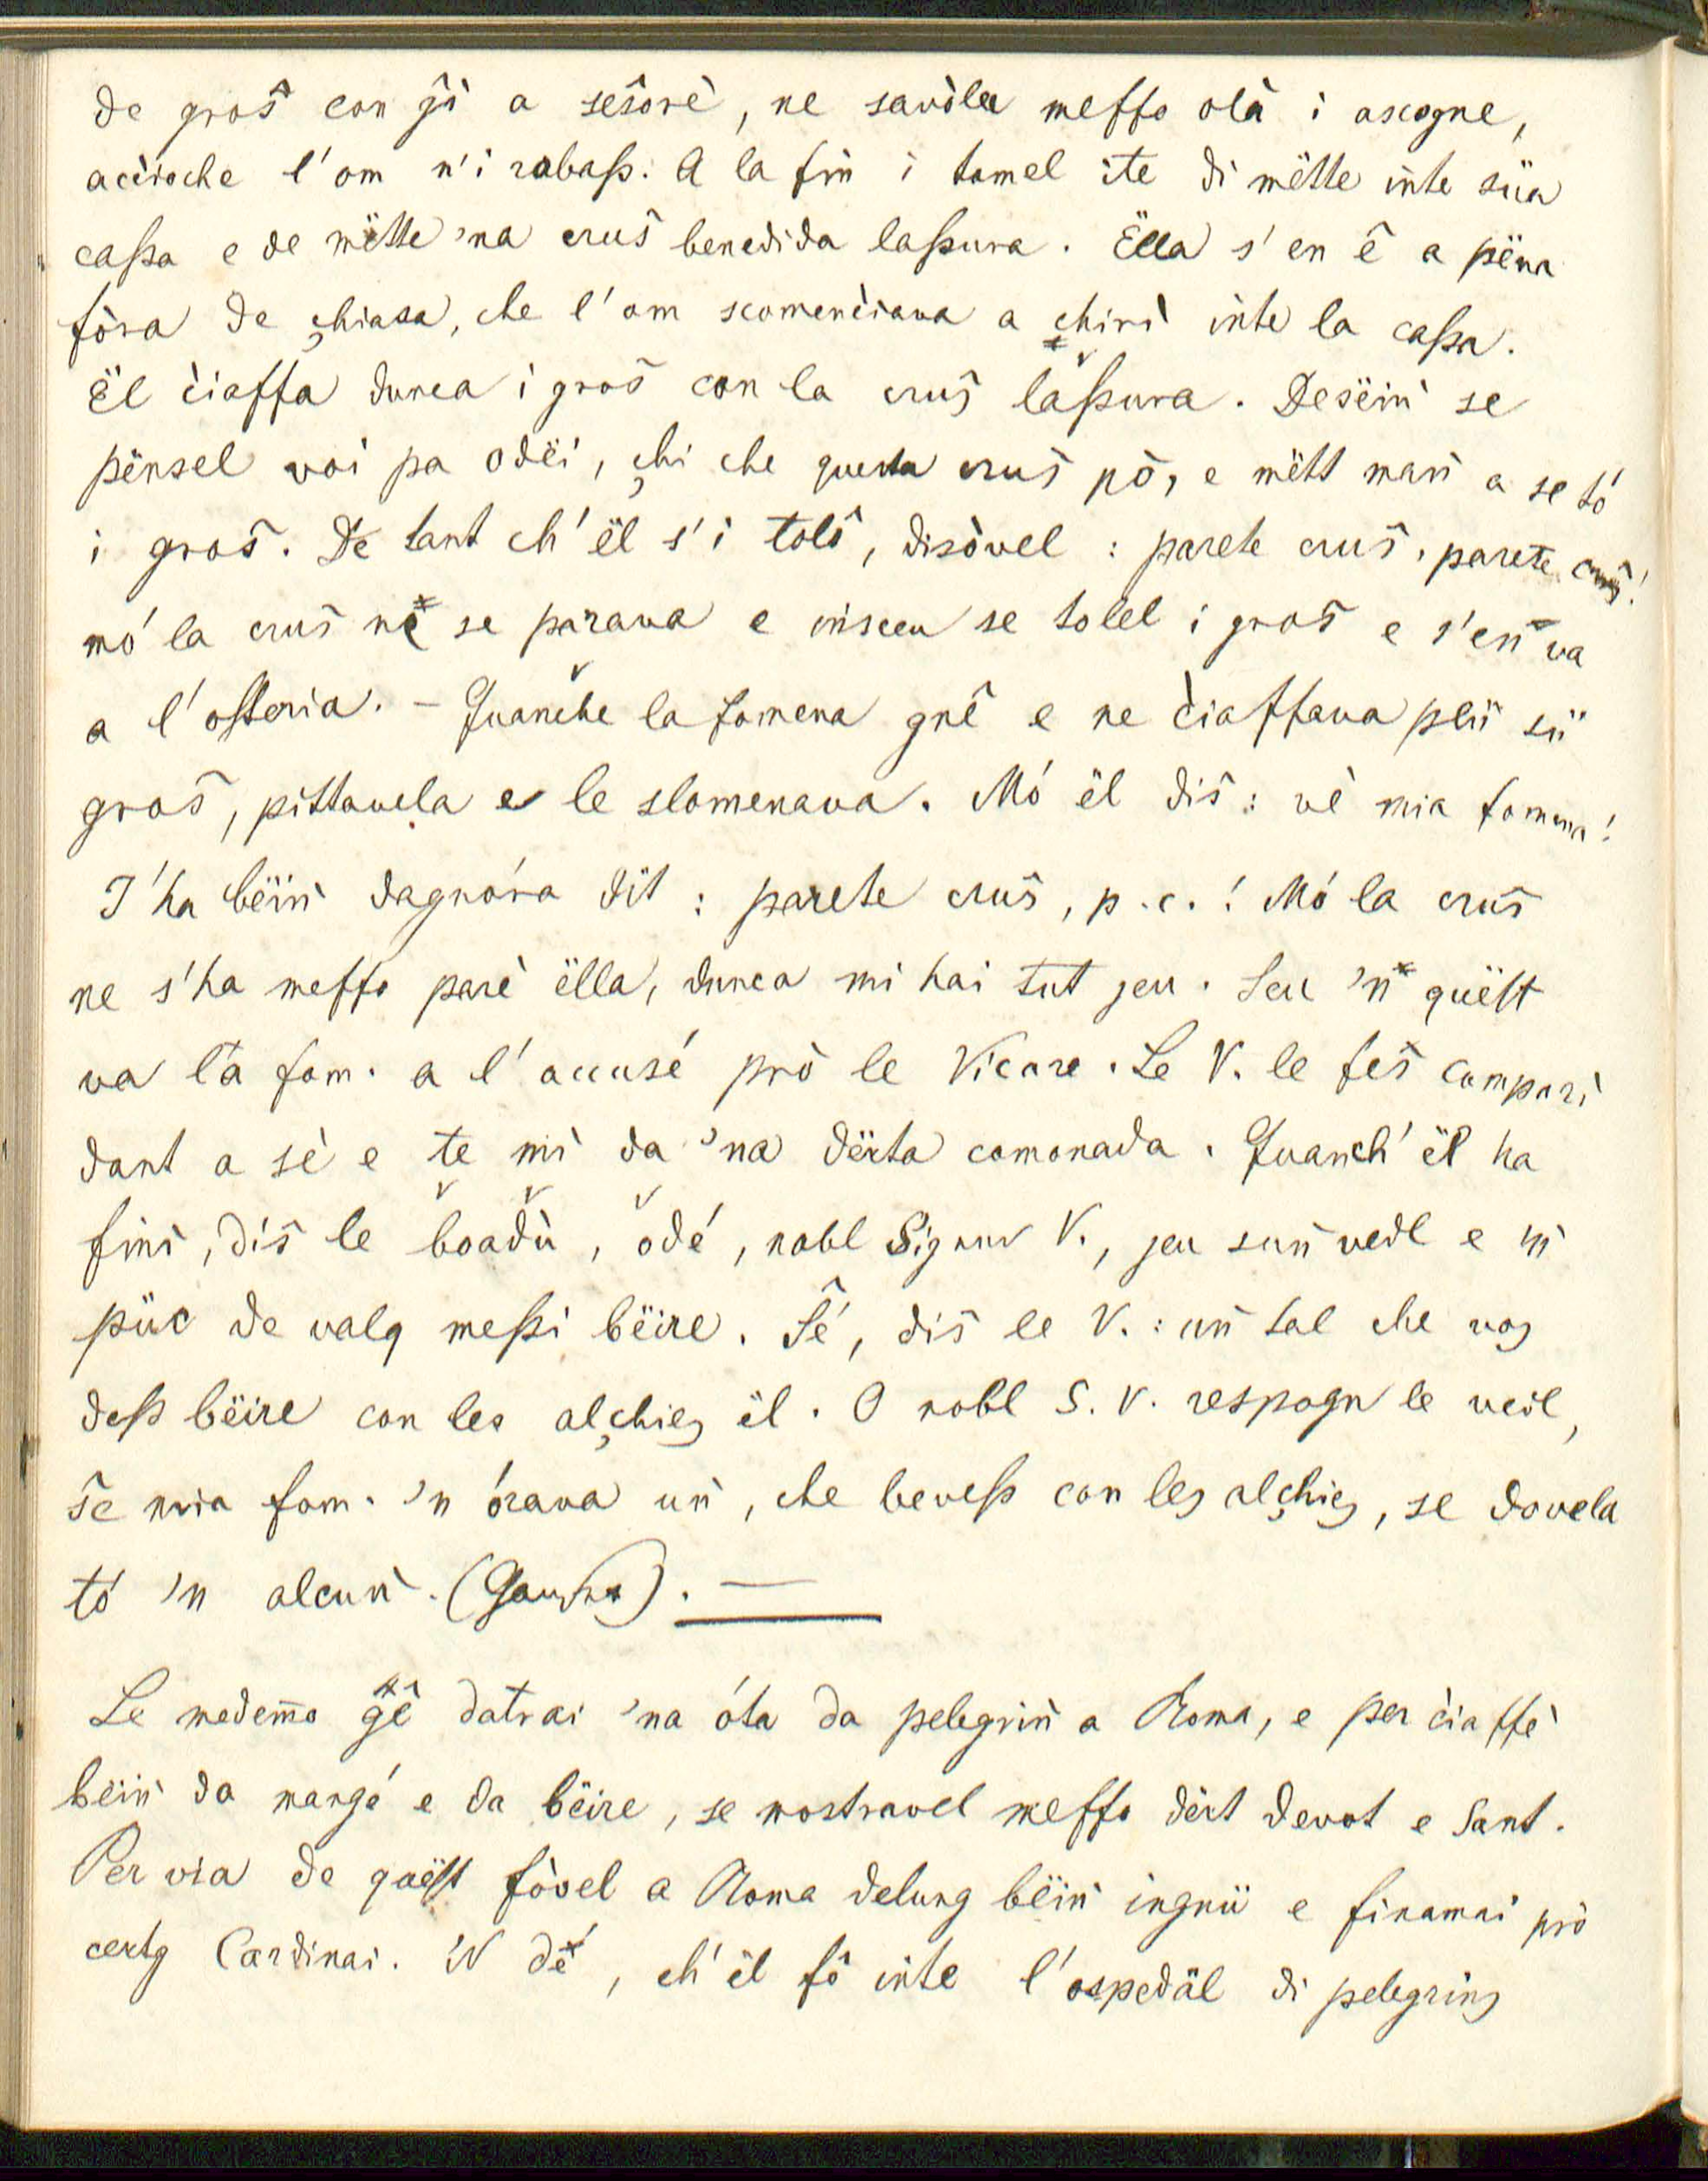 de groŝ con ĝi a seŝorè, ne savòla meffo olà i ascogne,
acèioche l'om n'i robaß. A la fiǹ i tomel ite di mëtte iǹte süa
caßa e de mëtte 'na cruŝ benedida laßura. Ëlla s'en ê a pëna
fòra de çhiasa, che l'om scomenċiava a çhirì iǹte la caßa.
Ël ċiaffa dunca i groŝ con la cruŝ laßura. Deseiǹ se
pënsel voi pa odëi, çhi che questa cruŝ pò, e mëtt maǹ a se tó
i groŝ. De tant ch'ël s'i tolô, disòvel : parete cruŝ, parete cruŝ!
mó la cruŝ ne se parava e insceu se tolel i groŝ e s'eǹ va
a l'osteria. – Quanche la fomena gnê e ne ċiaffava plü sü
groŝ, pittavela e le slomenava. Mó ël diŝ : vè mia fomena!
I'ha bëiǹ dagnóra dit : parete cruŝ, p. c.! Mó la cruŝ
ne s'ha meffo parè ëlla, dunca mi hai tut jeu. Seu 'ǹ quëst
va la fom. a l'accusé prò le Vicare. Le V. le feŝ comparì
dant a sè e te mì da 'na dërta comonada. Quanch' ël ha
finì, diŝ le boadù, odé, nobl Signur V., jeu suǹ vedl e m'
püc de valg meßi bëire. Sé, diŝ le V. : uǹ tal che vos
deß bëire con les alçhies ël. O nobl S. V. respogn le vedl,
ŝe mia fom. 'n órava uǹ, che beveß con les alçhies, se dovela
tó 'n alcuǹ. (Gauner). —
Le medemo ĝê datrai 'na óta da pelegriǹ a Roma, e per ċiaffè
bëiǹ da mangé e da bëire, se mostravel meffo dërt devot e sant.
Per via de quëst fòvel a Roma delung bëiǹ ingnü e finamai prò
certg Cardinai. 'N dé, ch'ël fô iǹte l'ospedäl di pelegrins